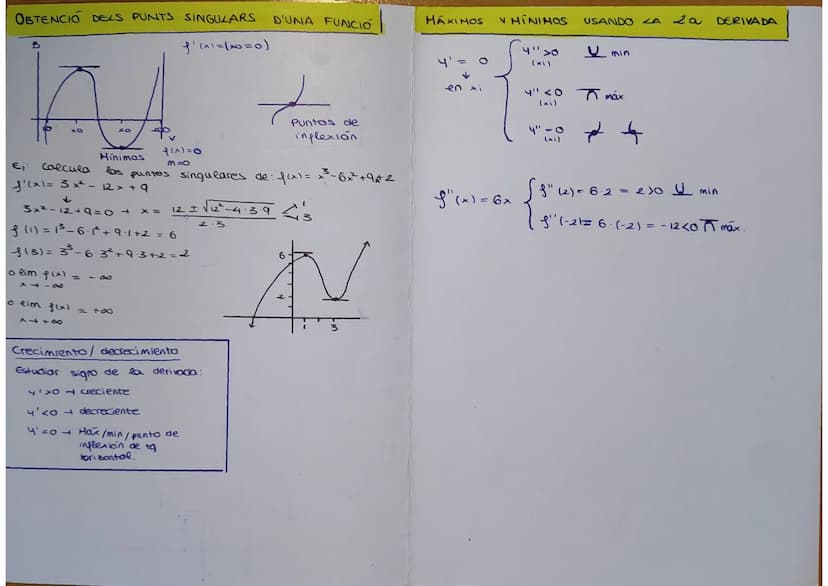 OBTENCIÓ DELS PUNTS SINGULARS D'UNA FUNCIÓ
f'(x)=(x0=0)
B
x0
x0
Mínimos
f(x)=0
m=0
Puntos de
inflexión
Ej: Calcula los puntos singulares de: f(x)= x³-6x²+9x+2
f'(x)= 3x²-12x+9
3x²-12+9=0 → x= 12 ± √12²-4·3·9 / 2·3 < 1 3
f(1)=1³-6·1²+9·1+2=6
f(3)=3³-6·3²+9·3+2=2
o lim f(x) = -∞
x→-∞
o lim f(x) = +∞
x→+∞
6
2
1
3
Crecimiento/decrecimiento
Estudiar signo de la derivada:
y'>0 → creciente
y'<0 → decreciente
y'=0 → Máx/min/punto de
inflexión de tg
horizontal.
MÁXIMOS Y MÍNIMOS USANDO LA 2a DERIVADA
y' = 0
en xi
y''>0 min
(xi)
y''<0 máx
(xi)
y''=0
(xi)
f''(x)=6x
f''(2)=6·2=2>0 min
f''(-2)=6·(-2)=-12<0 máx.